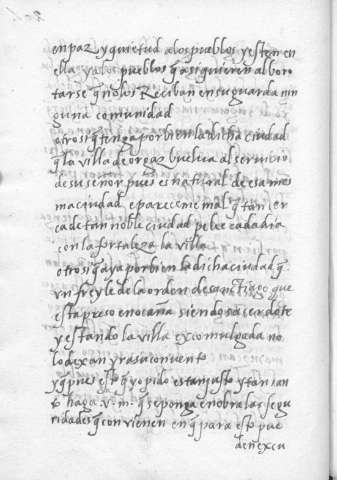 en paz y quietud a los pueblos y esten en
ella y a los pueblos q̃ asi quieren albоro
tarse q̃ no los Reciban en su guarda nin
guna comunidad
otrosi q̃ tenga por bien la dicha ciudad
q̃ la villa de orgaz buelva al servicio
de su señor pues es natural de esa mes
ma ciudad e parece me mal q̃ tan cer
ca de tan noble ciudad pelee cada dia
con la fortaleza la villa
otrosi q̃ aya por bien la dicha ciudad q̃
vn freyle de la orden de sanctiago que
esta preso en ocaña siendo sacerdote
y estando la villa excomulgada no
lo dexan yr a su convento
y q̃ pues esto q̃ yo pido es tan justo y tan san
to haga .v. m. q̃ se ponga en obra las segu
ridades q̃ convienen en q̃ para esto pue
den excu